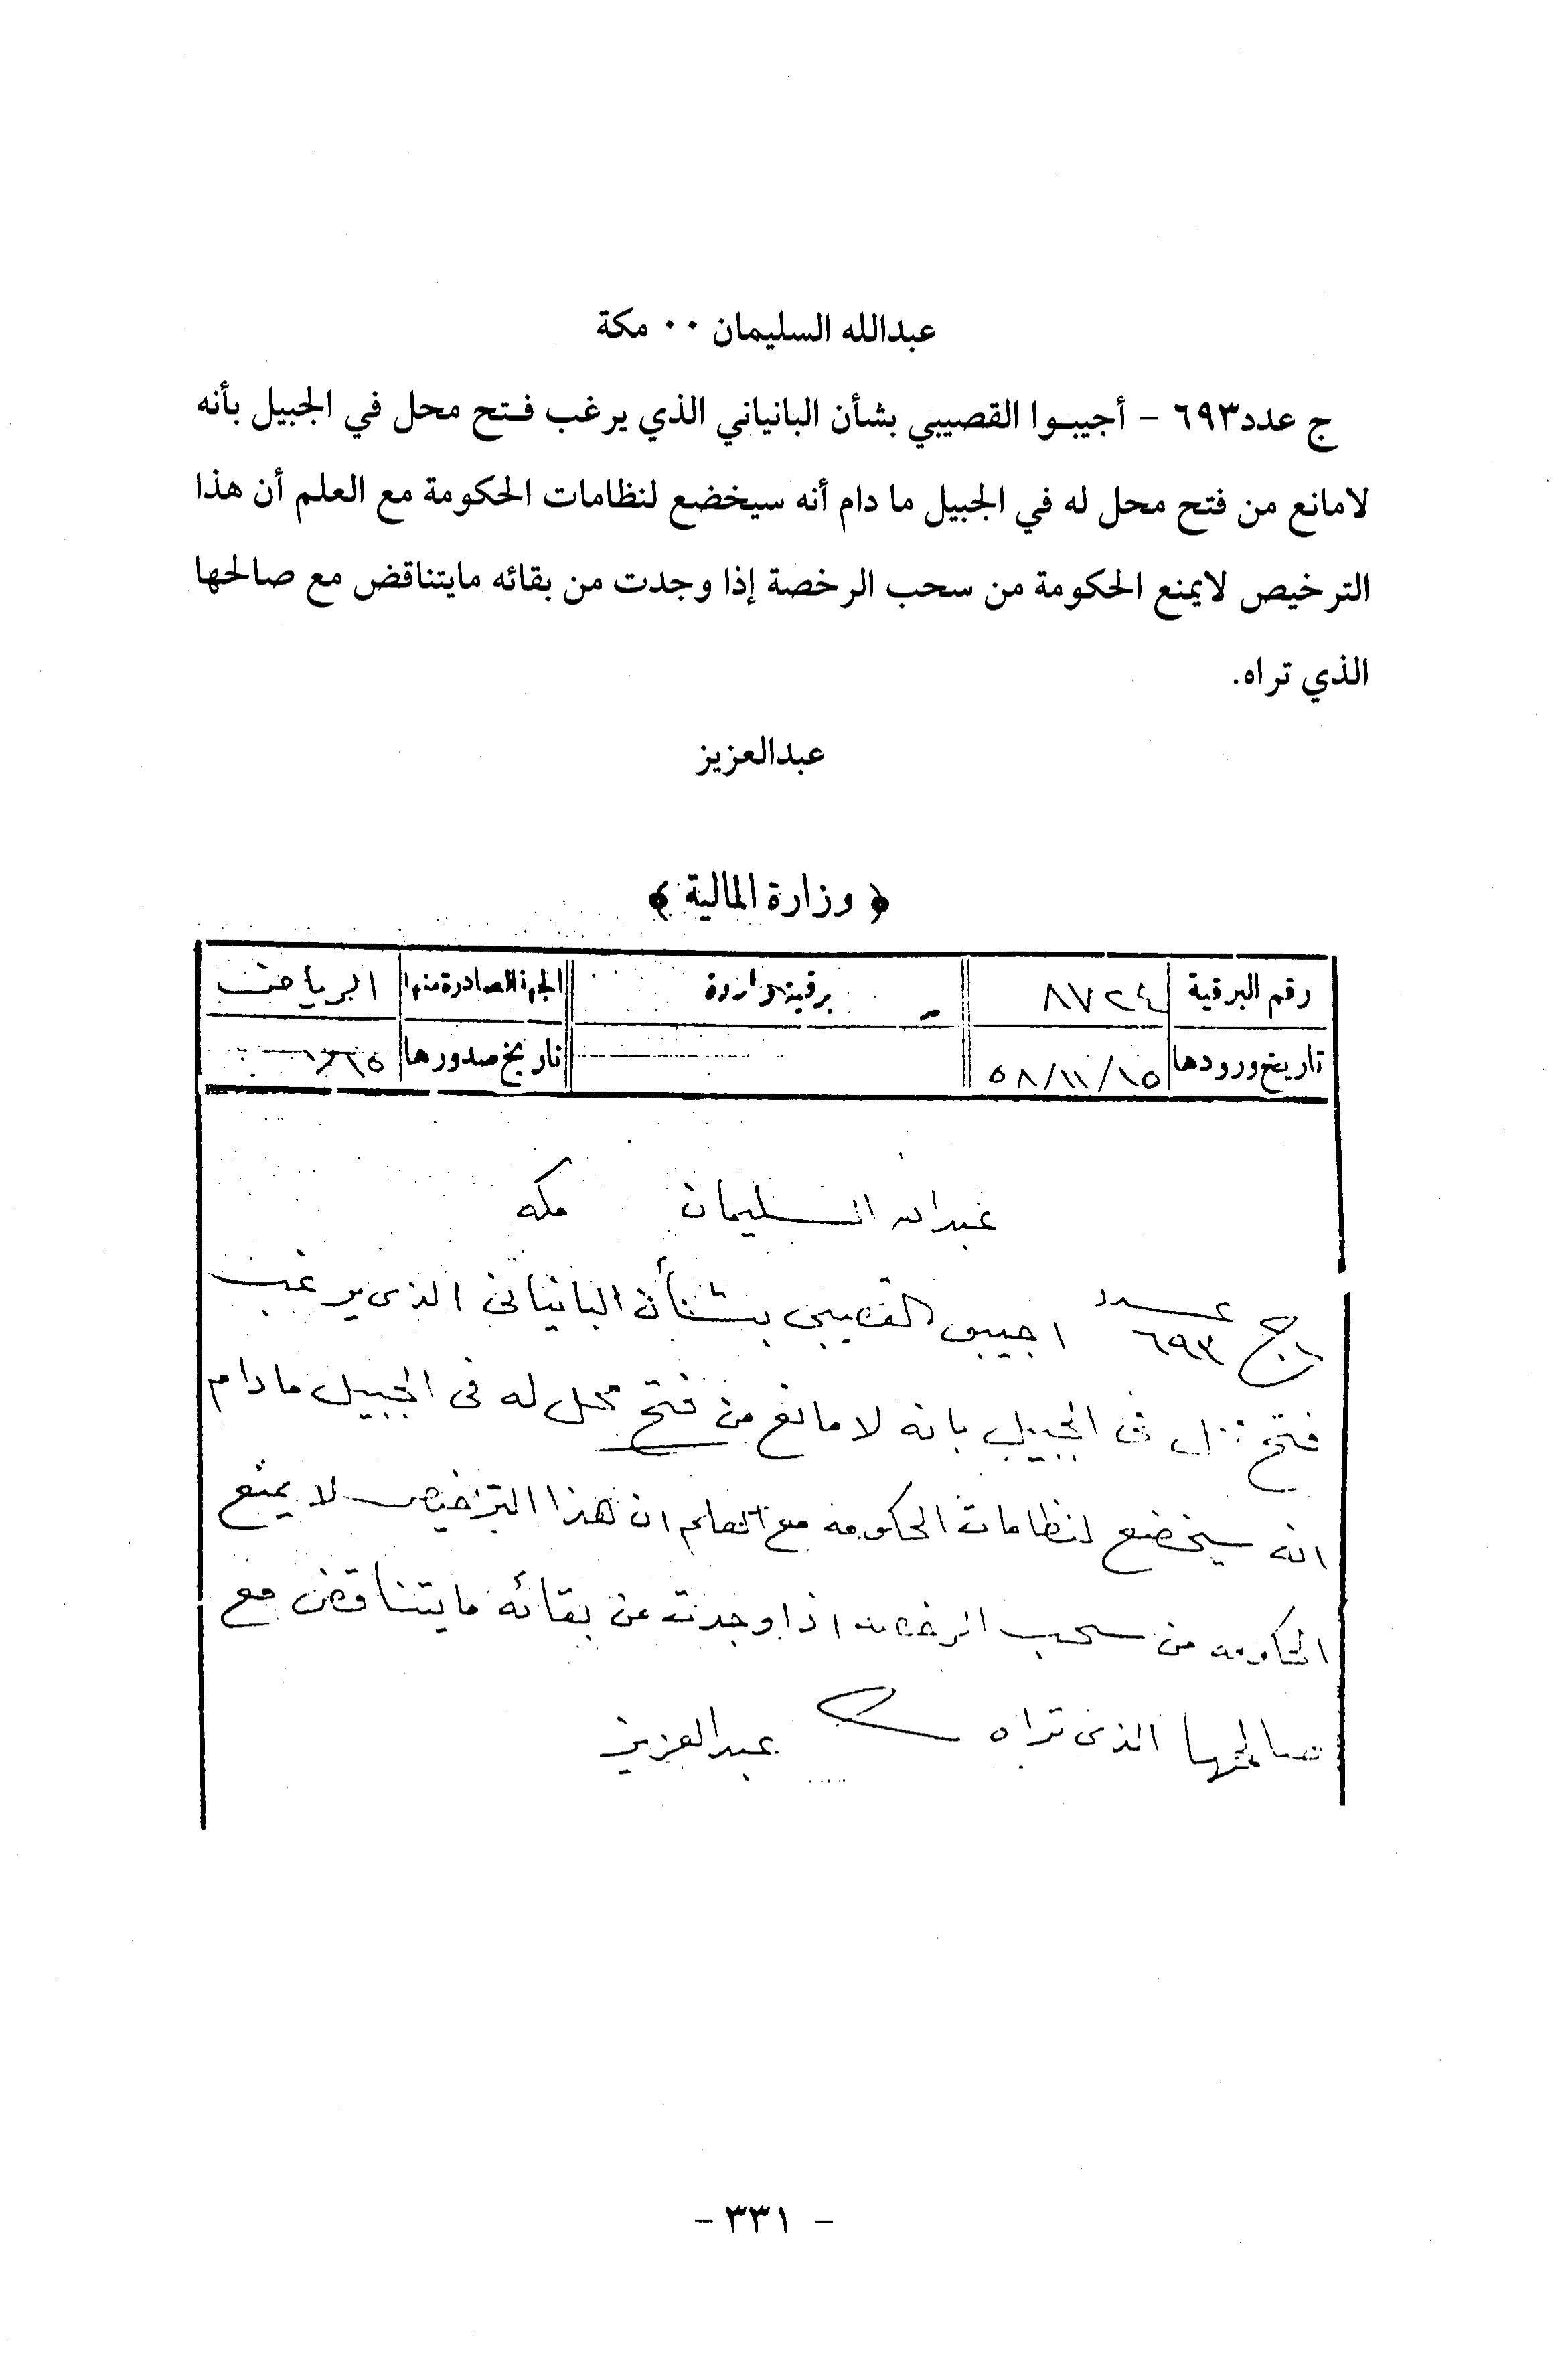 عبدالله السليمان ٠٠ مكة
ج عدد٦٩٣ - أجيبوا القصيبي بشأن البانياني الذي يرغب فتح محل في الجبيل بأنه
لامانع من فتح محل له في الجبيل ما دام أنه سيخضع لنظامات الحكومة مع العلم أن هذا
الترخيص لايمنع الحكومة من سحب الرخصة إذا وجدت من بقائه مايتناقض مع صالحها
الذي تراه.
عبدالعزيز
﴿ وزارة المالية ﴾
رقم البرقية ٨٧٢٤ برقية واردة الجهة الصادرة منها الرياض
تاريخ ورودها ٥٨/١١/١٥ تاريخ صدورها
عبدالله السليمان مكه
ج عدد ٦٩٣ اجيبو القصيبي بشأن البانياني الذي يرغب
فتح في الجبيل بانه لا مانع من فتح محل له في الجبيل ما دام
انه سيخضع لنظامات الحكومه مع العلم ان هذا الترخيص لا يمنع
الحكومه من سحب الرخصه اذا وجدت من بقائه ما يتناقض مع
صالحها الذي تراه عبدالعزيز
- ٣٣١ -